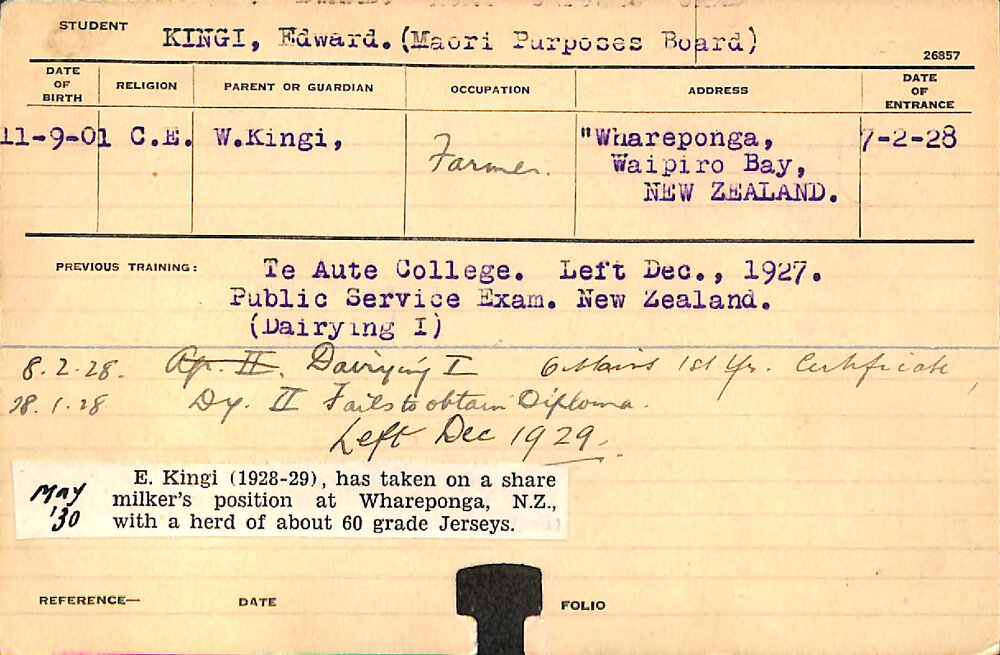 STUDENT KINGI, Edward. (Maori Purposes Board)
26857
DATE OF BIRTH RELIGION PARENT OR GUARDIAN OCCUPATION ADDRESS DATE OF ENTRANCE
11-9-01 C.E. W.Kingi, Farmer. "Whareponga, 7-2-28
Waipiro Bay,
NEW ZEALAND.
PREVIOUS TRAINING: Te Aute College. Left Dec., 1927.
Public Service Exam. New Zealand.
(Dairying I)
8.2.28. Ap. II. Dairying I Obtains 1st Yr. Certificate,
28.1.28 Dy. II Fails to obtain Diploma.
Left Dec 1929.
May '30
E. Kingi (1928-29), has taken on a share
milker's position at Whareponga, N.Z.,
with a herd of about 60 grade Jerseys.
REFERENCE— DATE FOLIO